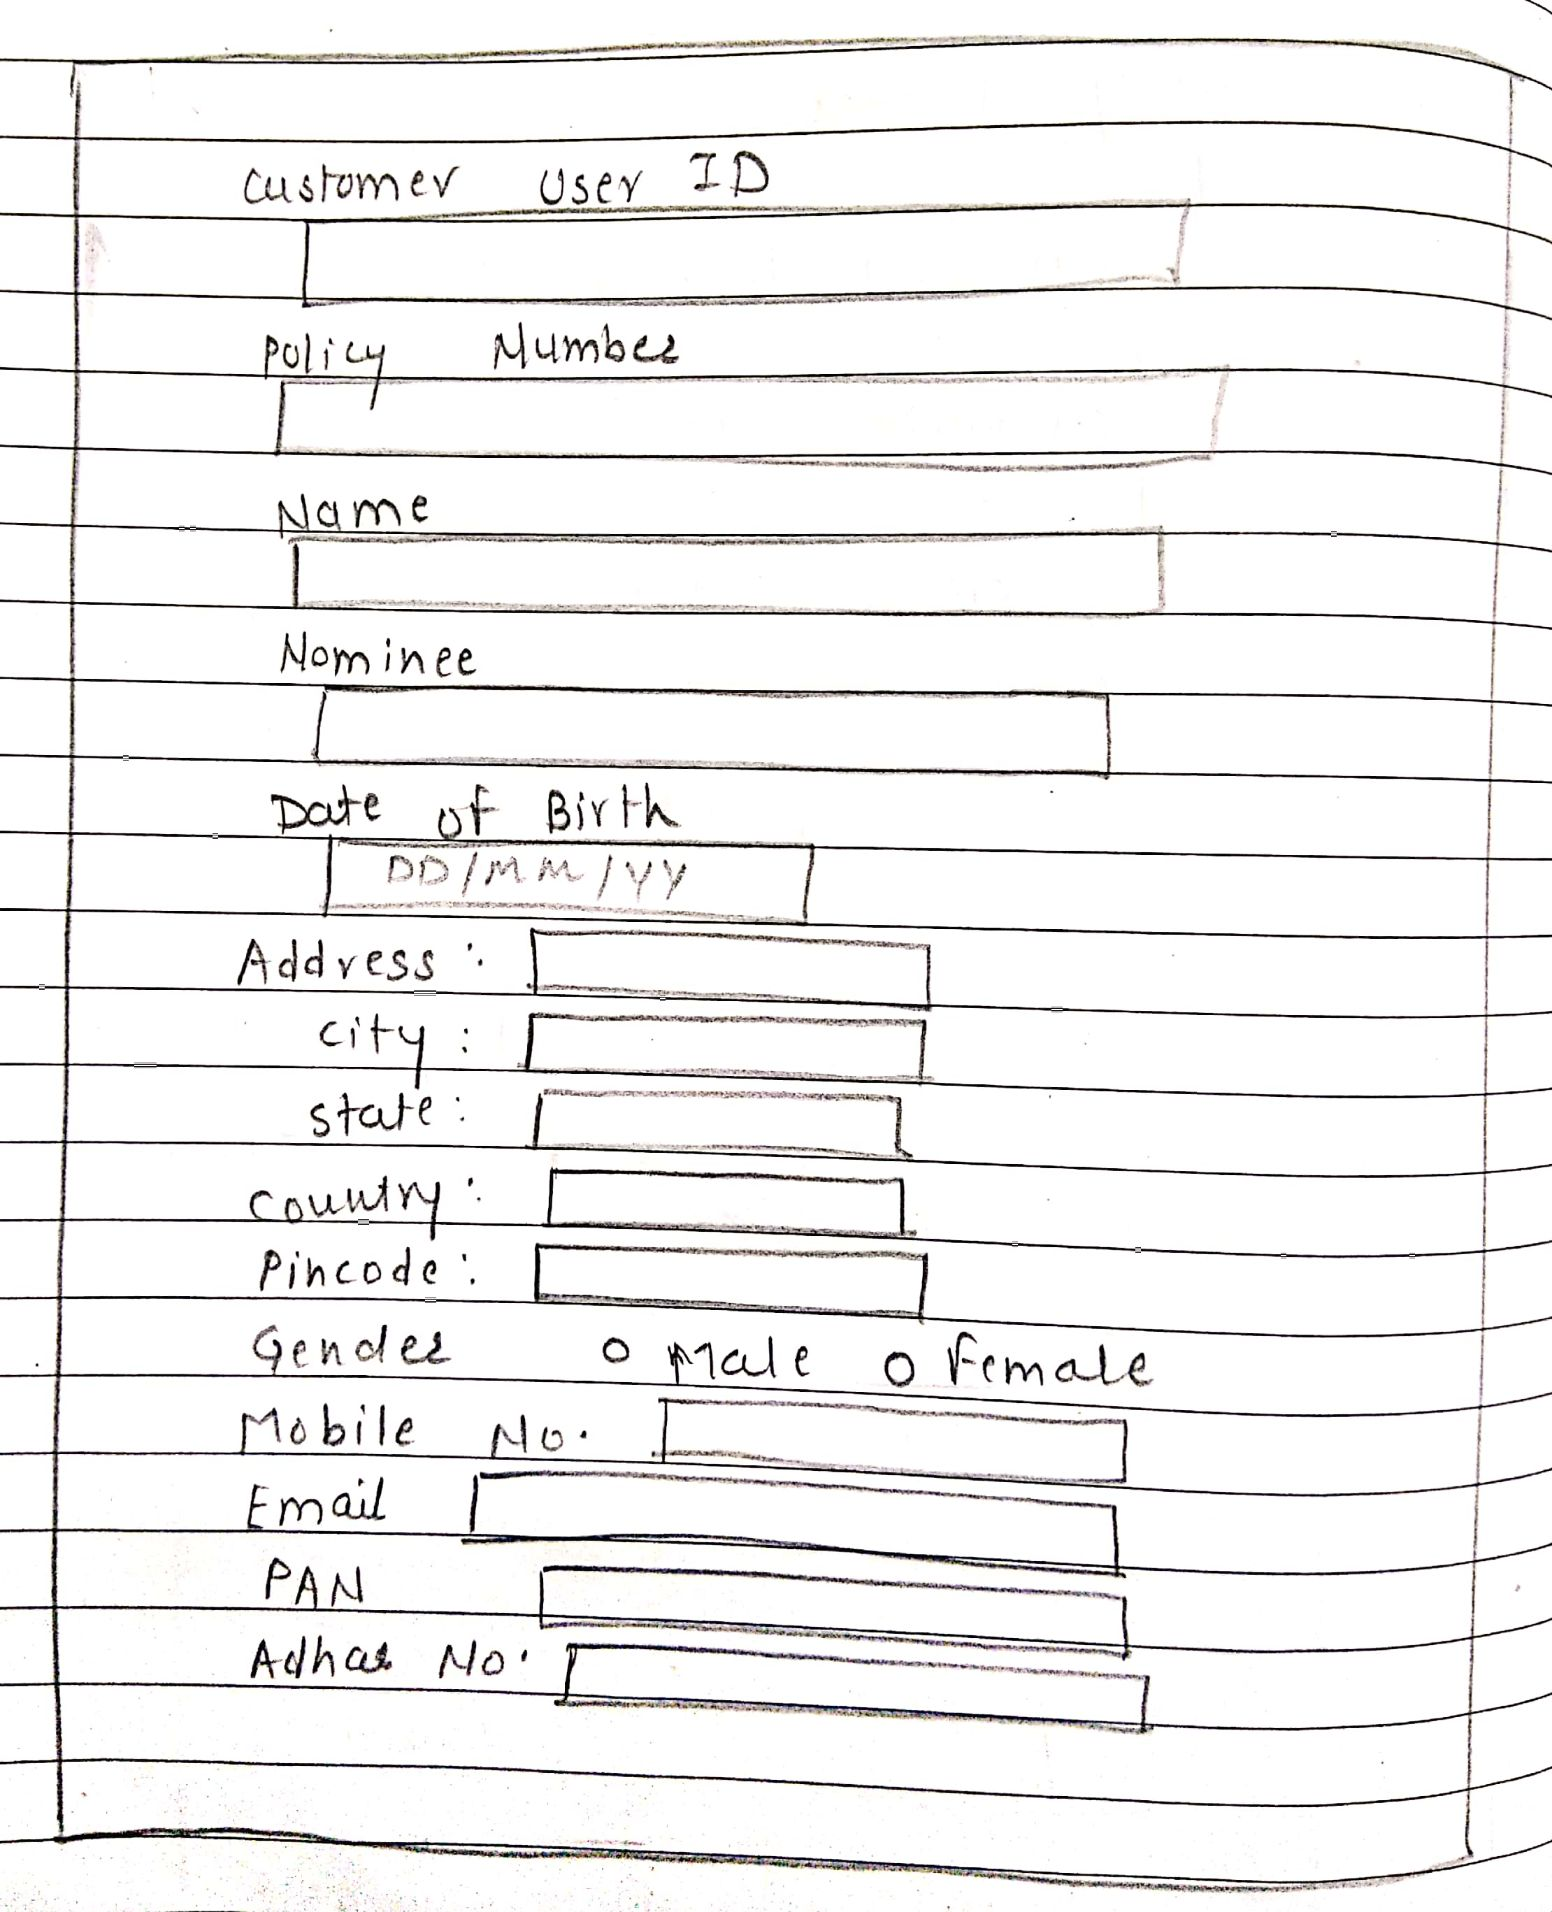 Customer User ID
Policy Number
Name
Nominee
Date of Birth
DD/MM/YY
Address :
City :
State :
Country :
Pincode :
Gender O Male O Female
Mobile No.
Email
PAN
Adhar No.